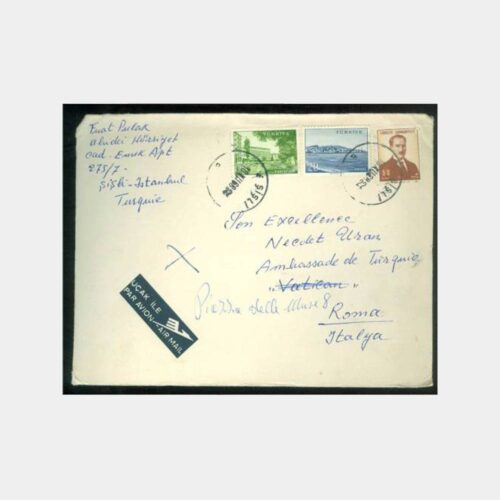 Fuat Pulak
abidei Hürriyet
cad. Emek Apt
275/7-
Şişli-Istanbul
Turquie
TÜRKİYE
TÜRKİYE
TÜRKİYE CUMHURİYETİ
ŞİŞLİ
ŞİŞLİ
Son Excellence
Necdet Uran
Ambassade de Turquie
"Vatican"
Piazza delle Muse 8
Roma
Italya
UÇAK İLE
PAR AVION-AIR MAIL